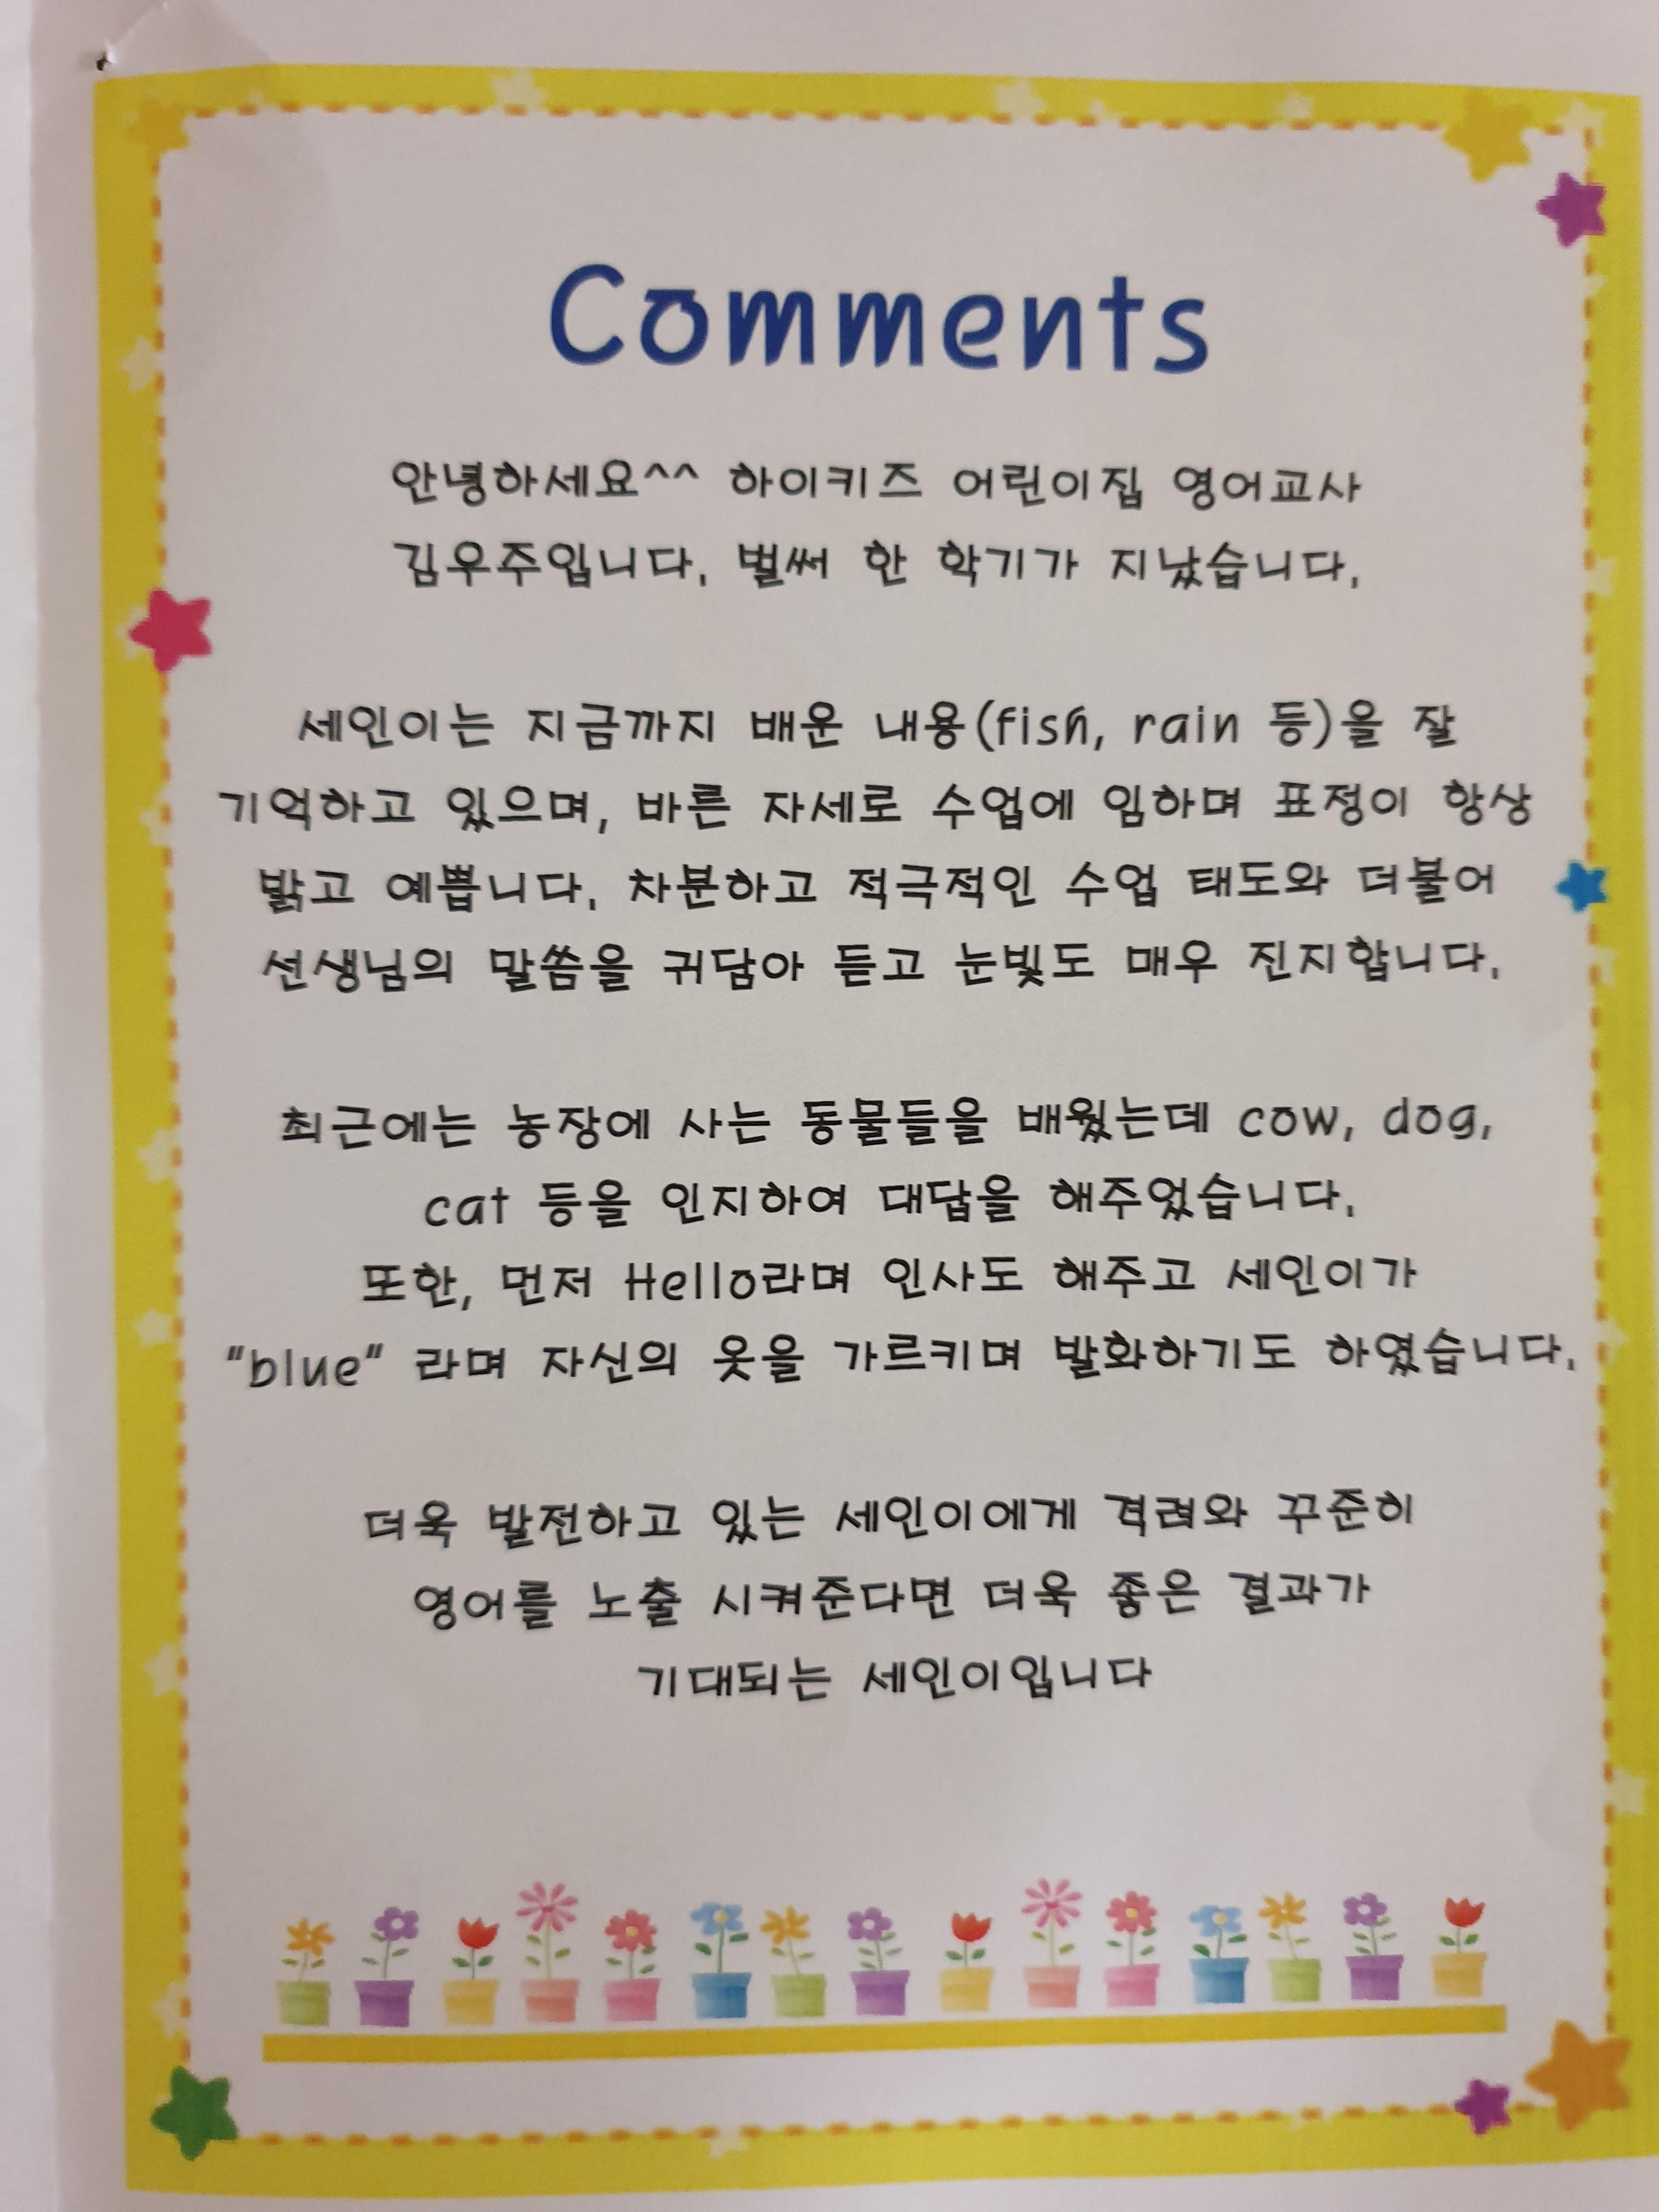 Comments
안녕하세요^^ 하이키즈 어린이집 영어교사
김우주입니다. 벌써 한 학기가 지났습니다.
세인이는 지금까지 배운 내용(fish, rain 등)을 잘
기억하고 있으며, 바른 자세로 수업에 임하며 표정이 항상
밝고 예쁩니다. 차분하고 적극적인 수업 태도와 더불어
선생님의 말씀을 귀담아 듣고 눈빛도 매우 진지합니다.
최근에는 농장에 사는 동물들을 배웠는데 cow, dog,
cat 등을 인지하여 대답을 해주었습니다.
또한, 먼저 Hello라며 인사도 해주고 세인이가
"blue" 라며 자신의 옷을 가르키며 발화하기도 하였습니다.
더욱 발전하고 있는 세인이에게 격려와 꾸준히
영어를 노출 시켜준다면 더욱 좋은 결과가
기대되는 세인이입니다